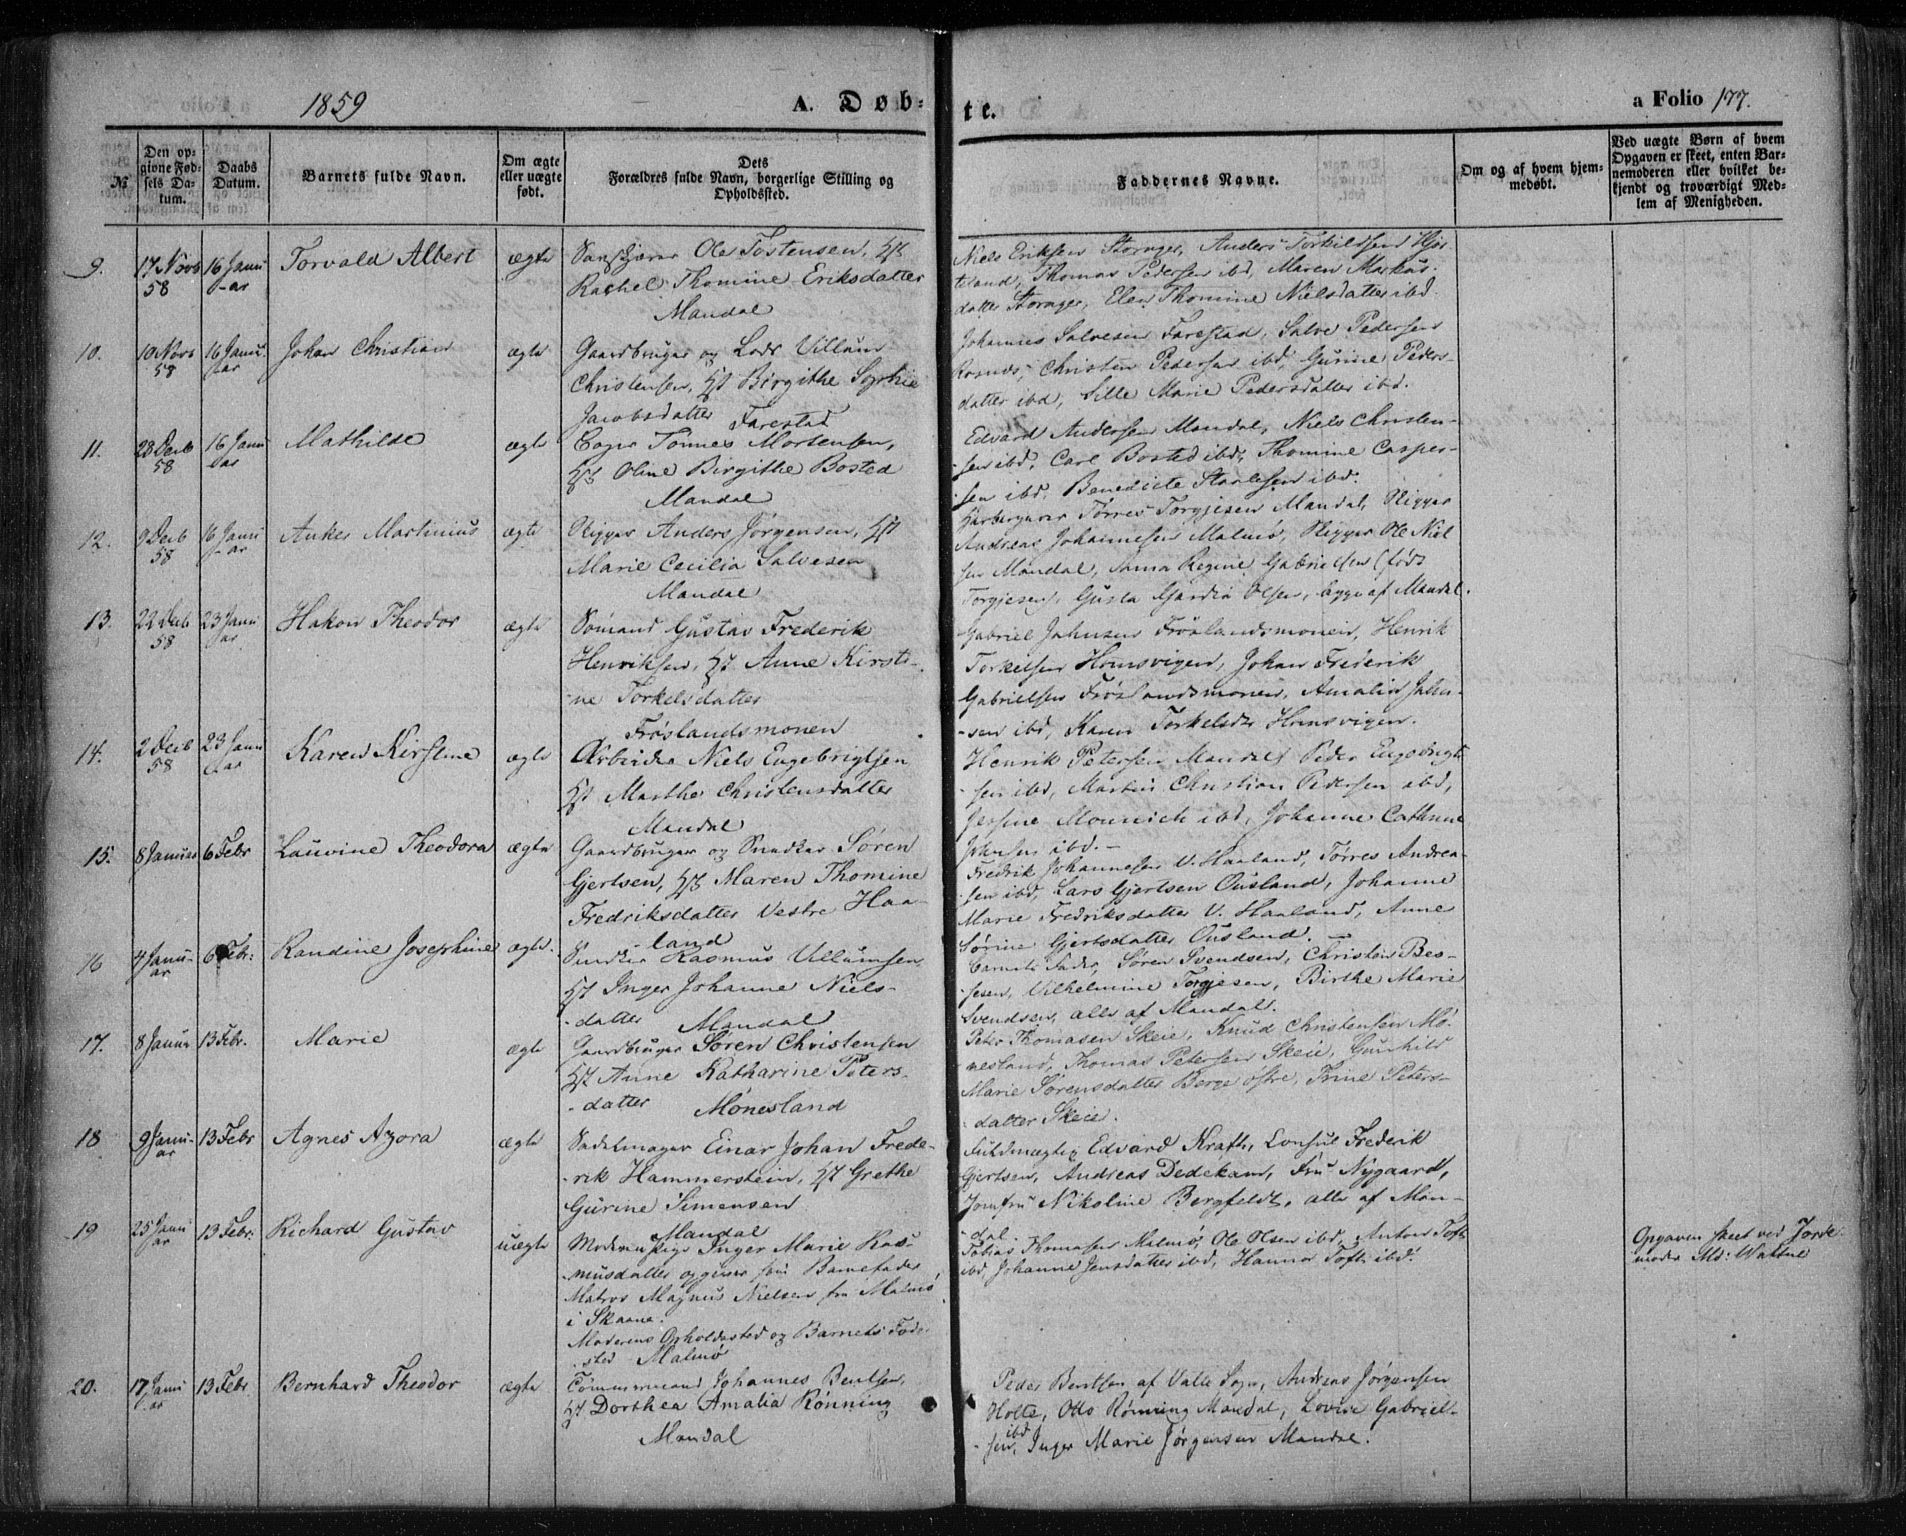 1859 A. Døb- te. a Folio 177.
№
Den op-
givne Fød-
sels Da-
tum.
Daabs
Datum.
Barnets fulde Navn.
Om ægte
eller uægte
født.
Dets
Forældres fulde Navn, borgerlige Stilling og
Opholdssted.
Faddernes Navne.
Om og af hvem hjem-
medøbt.
Ved uægte Børn af hvem
Opgaven er skeet, enten Bar-
nemoderen eller hvilket be-
kjendt og troværdigt Med-
lem af Menigheden.
9. 17 Novb 58 16 Janu-ar Torvald Albert ægte
Ole Tostensen, Hst
Rachel Thomine Eriksdatter
Mandal
Niels Eriksen Storager, Anders Torkildsen
Thomas Pedersen ibd, Maren Markus-
datter Storager, Elen Thomine Nielsdatter ibd.
10. 10 Novb 58 16 Janu-ar Johan Christian ægte
Gaardbruger og Lods Villum
Christensen, Hst Birgithe Sophie
Jacobsdatter Farestad
Johannes Salvesen Farestad, Salve Pedersen
Christen Pedersen ibd, Gurine Peders-
datter ibd, Sille Marie Pedersdatter ibd.
11. 28 Decb 58 16 Janu-ar Mathilde ægte
Tønnes Mortensen,
Hst Oline Birgithe Bosted
Mandal
Edvard Andersen Mandal, Niels Christen-
-sen ibd, Carl Bosted ibd, Thomine Casper-
-sen ibd, Benedicte Staalesen ibd.
12. 9 Decb 58 16 Janu-ar Anker Martinius ægte
Rigger Anders Jørgensen, Hst
Marie Cecilia Salvesen
Mandal
Tørres Torgjesen Mandal, Rigger
Andreas Johannesen Malmø, Rigger Ole Niel
sen Mandal, Anna Regine Gabrielsen (født
Torgjesen), Gusta Olsen, begge af Mandal.
13. 22 Decb 58 23 Janu-ar Hakon Theodor ægte
Sømand Gustav Frederik
Henriksen, Hst Anne Kirsti-
-ne Torkelsdatter
Frøslandsmonen
Gabriel Jahnsen Frøslandsmonen, Henrik
Torkelsen Homsvigen, Johan Frederik
Gabrielsen Frøslandsmonen, Amalia Jahn-
-sen ibd, Karen Torkelsdr Homsvigen.
14. 2 Decb 58 23 Janu-ar Karen Kirstine ægte
Arbeider Niels Engebrigtsen
Hst Marthe Christensdatter
Mandal
Henrik Petersen Mandal, Peder Engebrigt
-sen ibd, Martin Christian Pedersen ibd,
Jessine Monnich ibd, Johanne Cathrine
Johnsen ibd.-
15. 8 Januar 6 Febr Lauvine Theodora ægte
Gaardbruger og Snedker Søren
Gjertsen, Hst Maren Thomine
Fredriksdatter Vestre Haa-
land
Fredrik Johannesen V. Haaland, Tørres Andrea-
-sen ibd, Lars Gjertsen Ousland, Johanne
Marie Fredriksdatter V. Haaland, Anne
Sørine Gjertsdatter Ousland.-
16 4 Janu-ar 6 Febr: Randine Josephine ægte.
Snedker Rasmus Villumsen
Hst Inger Johanne Niels-
-datter Mandal
Barnets Fader, Søren Svendsen, Christen Bes-
-sesen, Vilhelmine Torgjesen, Birthe Marie
Svendsen, alle af Mandal.
17. 8 Januar 13 Febr. Marie ægte
Gaardbruger Søren Christensen
Hst Anne Katharine Peters-
-datter Mønesland
Peter Thomasen Skeie, Knud Christensen Mø-
nesland, Thomas Petersen Skeie, Gunhild
Marie Sørensdatter Berge østre, Trine Peters-
-datter Skeie.
18 9 Janu-ar 13 Febr Agnes Azora ægte
Sadelmager Einar Johan Frede-
-rik Hammerstein, Hst Grethe
Gurine Simensen
Mandal
Fuldmægtig Edvard Kraft, Consul Frederik
Gjertsen, Andreas Dedekam, Fru Nygaard,
Jomfru Nikoline Bergfeldt, alle af Man-
-dal.
19 25 Janu-ar 13 Febr. Richard Gustav uægte
Moderen Pige Inger Marie Ras-
musdatter opgiver som Barnefader
Matros Magnus Nielsen fra Malmø
i Skaane.
Moderens Opholdssted og Barnets Føde-
-sted Malmø
Tobias Thomasen Malmø, Ole Olsen ibd, Anton Toft
ibd, Johanne Jensdatter ibd, Hanna Toft ibd.
Opgaven skeet ved Jorde-
moder Md: Wattne
20. 17 Janu-ar 13 Febr. Bernhard Theodor ægte
Tømmermand Johannes Bentsen
Hst Dorthea Amalia Rønning
Mandal
Peder Bentsen af Valle Sogn, Andreas Jørgensen
Holte, Otto Rønning Mandal, Lovise Gabriel-
-sen ibd, Inger Marie Jørgensen Mandal.